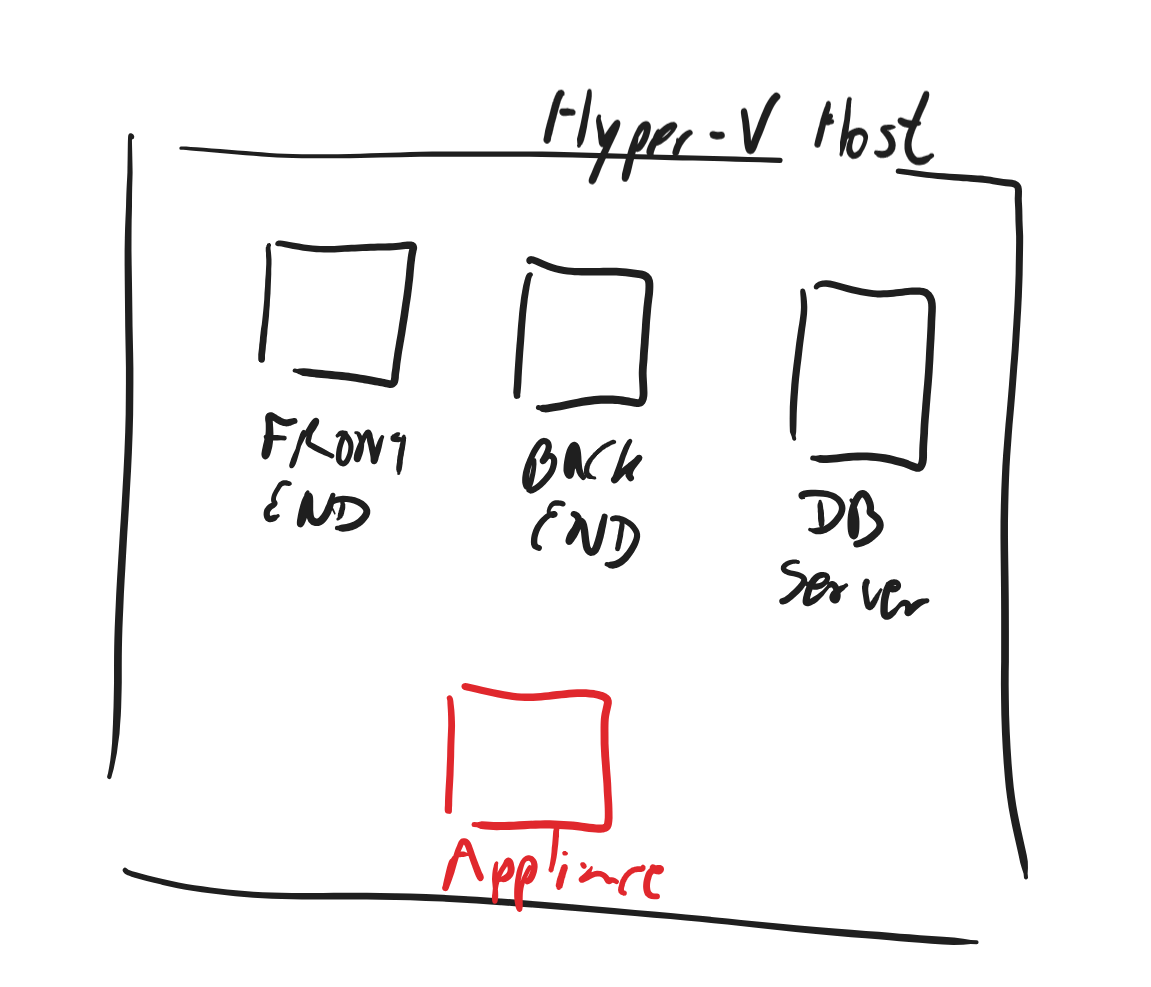 Hyper-V Host
FRONT
END
BACK
END
DB
Server
Appliance